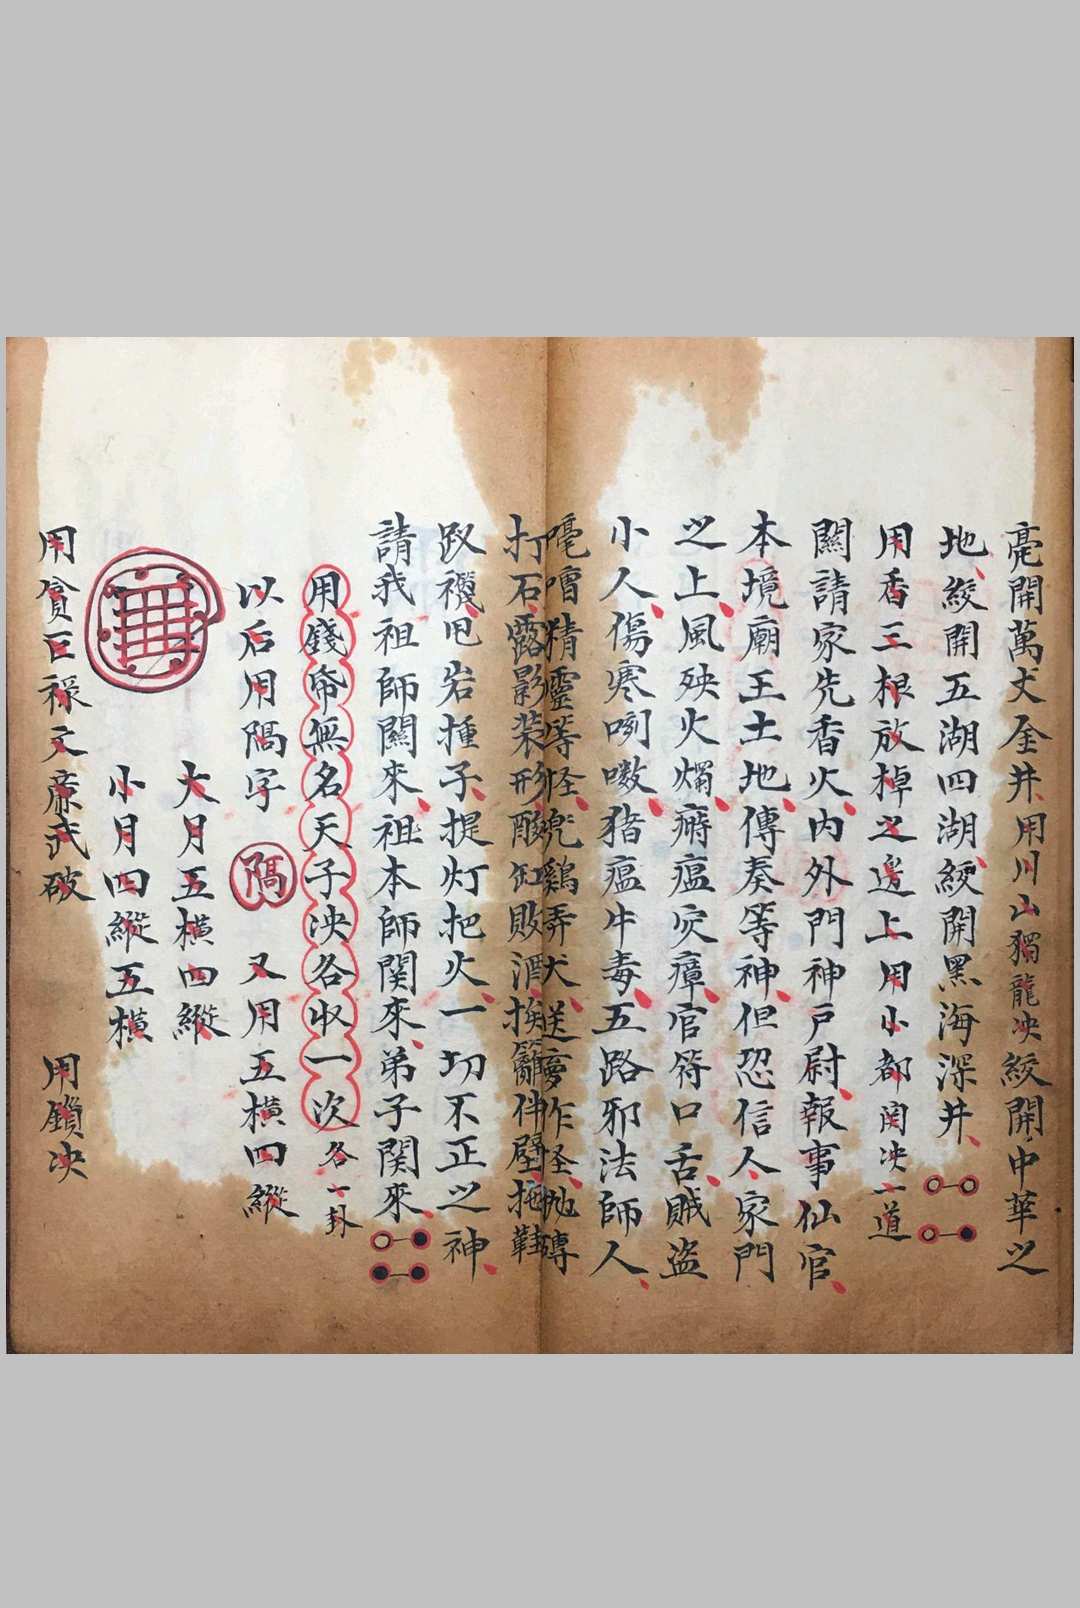 亮開萬丈金井用川山獨龍決絞開中華之
地絞開五湖四湖絞開黑海深井
用香三根放棹之邊上用小都関決一道
關請家先香火內外門神戸尉報事仙官
本境廟王土地傳奏等神但忍信人家門
之上風殃火燭瘠瘟灾瘴官符口舌賊盜
小人傷寒咧嗷猪瘟牛毒五路邪法師人
嚕精靈等怪兜鷄弄犬送夢作怪抛磚
打石露影装形酸缸敗酒挨籬伴壁拖鞋
岩撞子提灯把火一切不正之神
請我祖師關來祖本師関來弟子関來
用錢帋無名天子決各收一次各一卦
以后用隔字 隔 又用五横四縱
大月五横四縱
小月四縱五横
用貪巨禄文廉武破 用鎖決